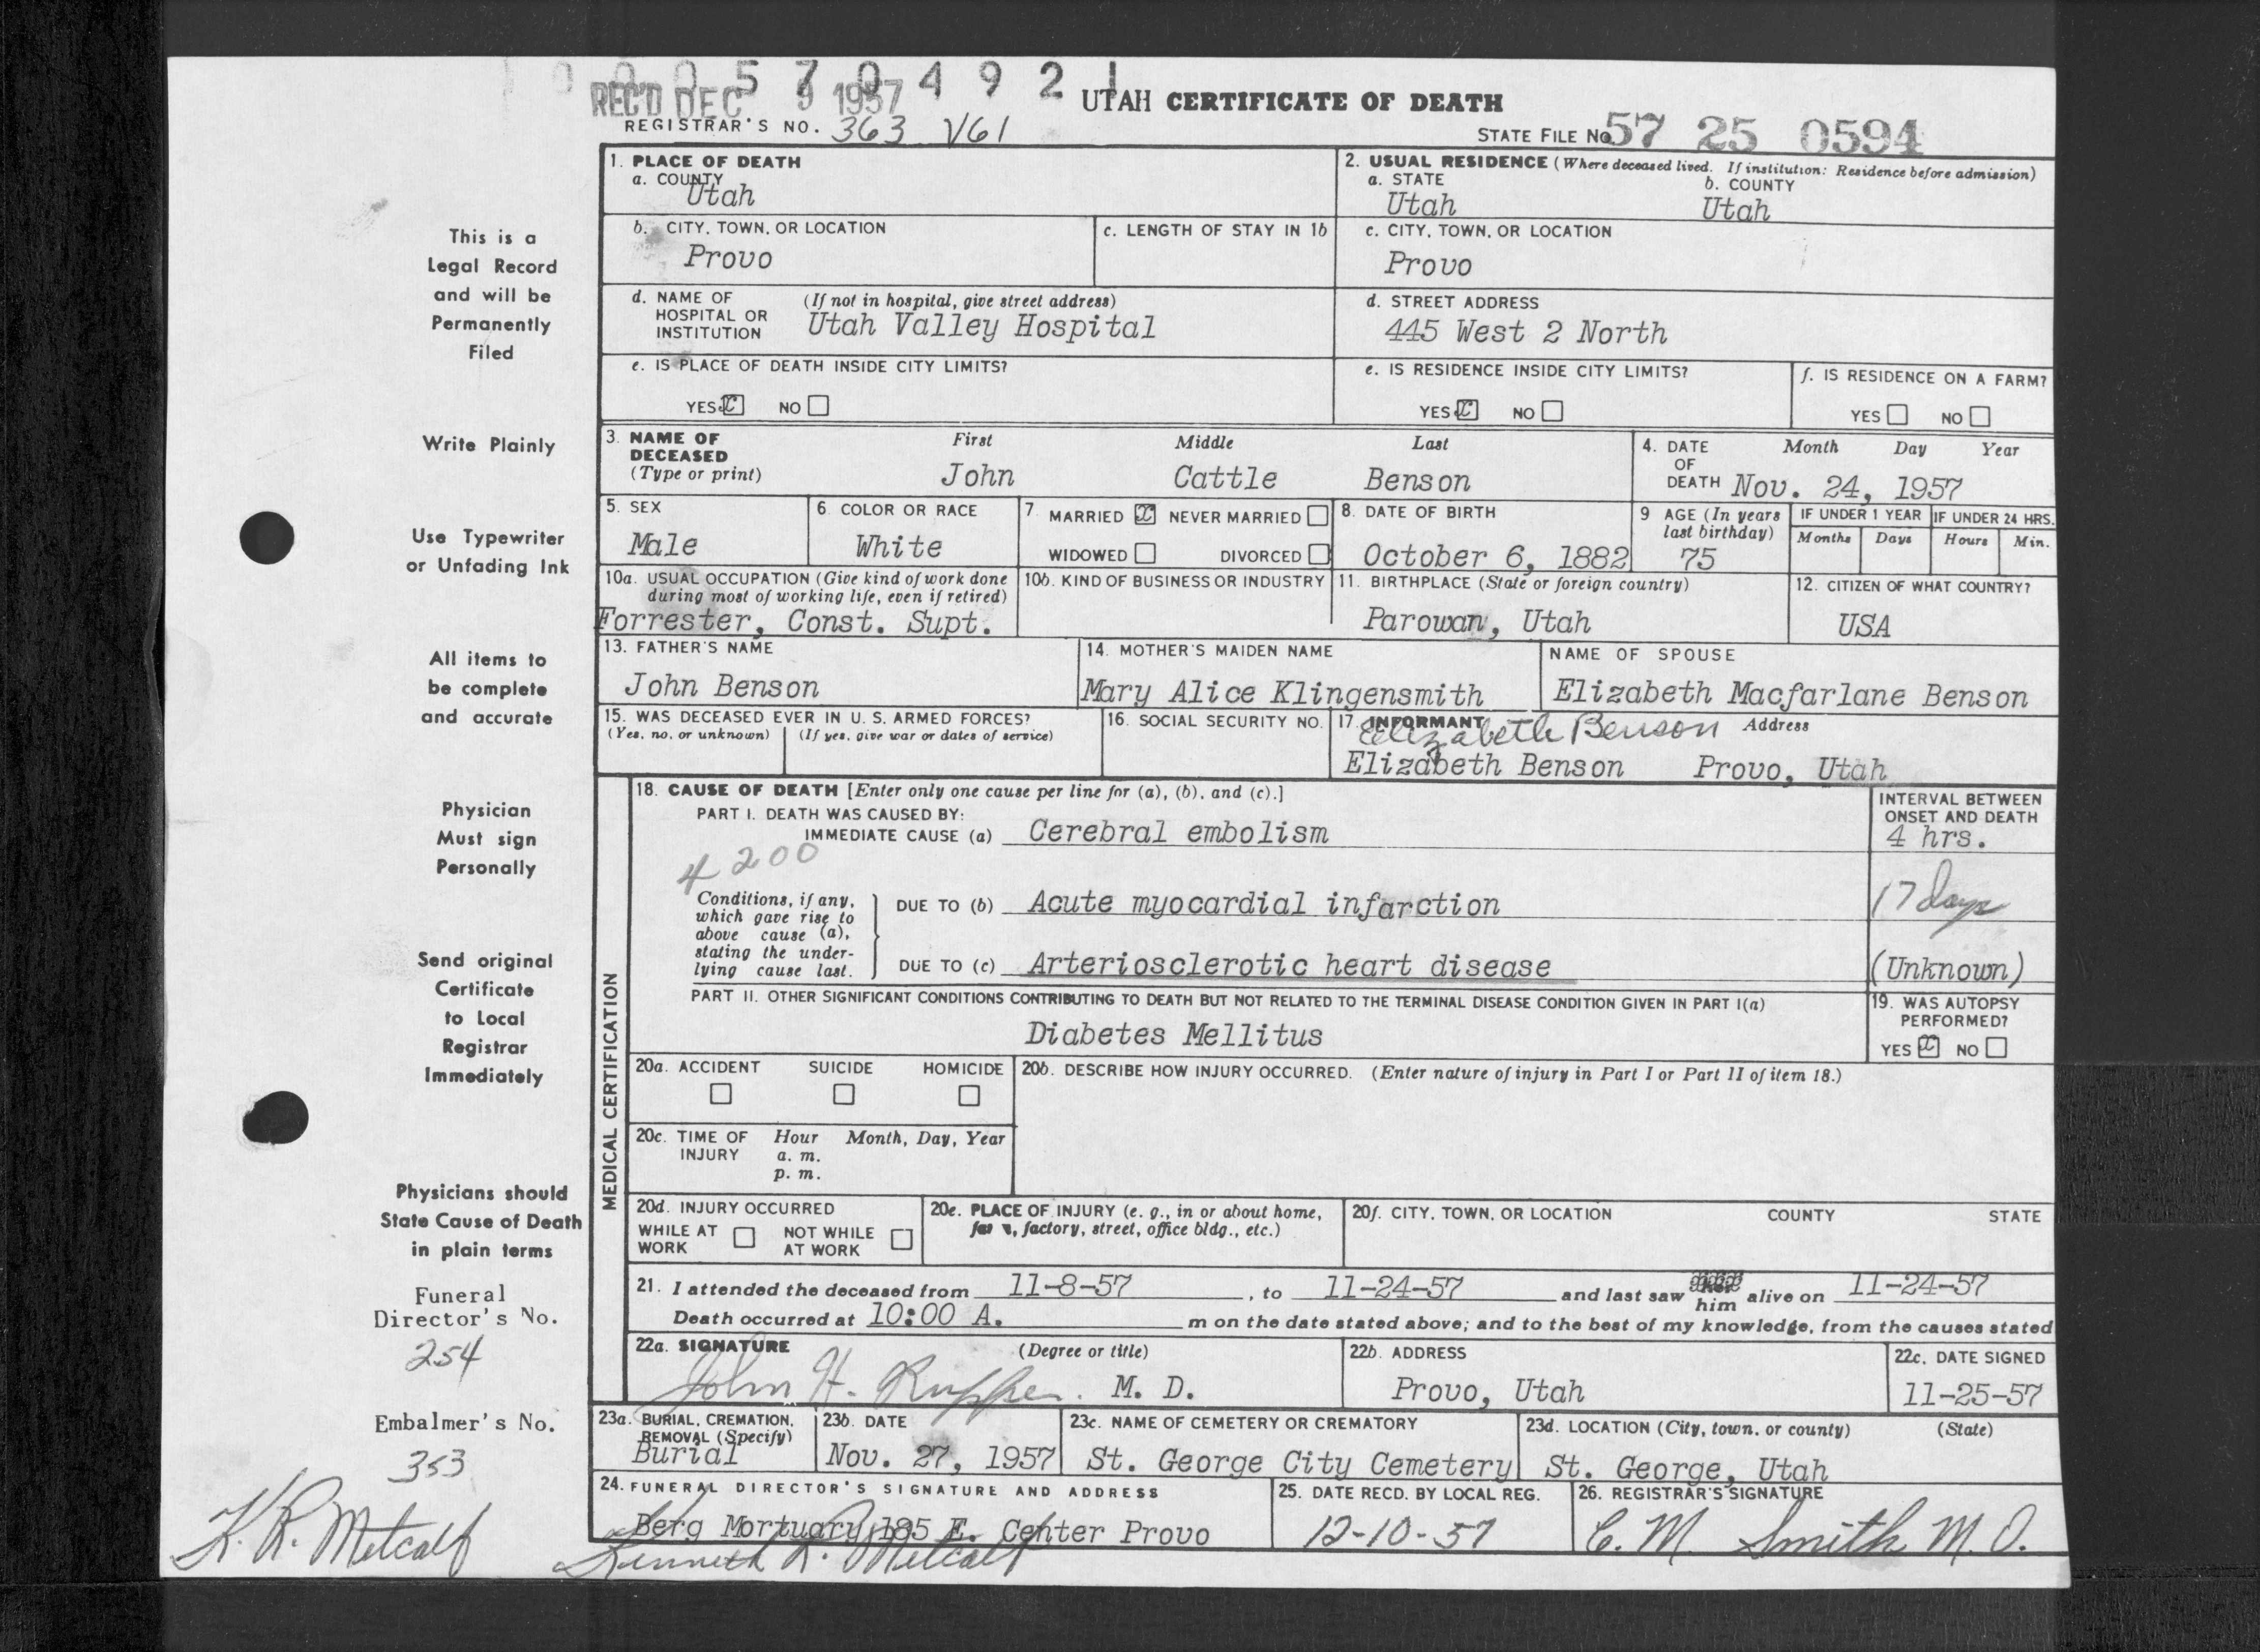 0 0 0 5 7 0 4 9 2 1
REC'D DEC 9 1957
UTAH CERTIFICATE OF DEATH
REGISTRAR'S NO. 363 V61
STATE FILE No 57 25 0594
This is a
Legal Record
and will be
Permanently
Filed
Write Plainly
Use Typewriter
or Unfading Ink
All items to
be complete
and accurate
Physician
Must sign
Personally
Send original
Certificate
to Local
Registrar
Immediately
Physicians should
State Cause of Death
in plain terms
Funeral
Director's No.
254
Embalmer's No.
353
K. R. Metcalf
1. PLACE OF DEATH
a. COUNTY
Utah
2. USUAL RESIDENCE (Where deceased lived. If institution: Residence before admission)
a. STATE
Utah
b. COUNTY
Utah
b. CITY, TOWN, OR LOCATION
Provo
c. LENGTH OF STAY IN 1b
c. CITY, TOWN, OR LOCATION
Provo
d. NAME OF HOSPITAL OR INSTITUTION
(If not in hospital, give street address)
Utah Valley Hospital
d. STREET ADDRESS
445 West 2 North
e. IS PLACE OF DEATH INSIDE CITY LIMITS?
YES x NO
e. IS RESIDENCE INSIDE CITY LIMITS?
YES x NO
f. IS RESIDENCE ON A FARM?
YES NO
3. NAME OF DECEASED
(Type or print)
First Middle Last
John Cattle Benson
4. DATE OF DEATH
Month Day Year
Nov. 24, 1957
5. SEX
Male
6. COLOR OR RACE
White
7. MARRIED x NEVER MARRIED
WIDOWED DIVORCED
8. DATE OF BIRTH
October 6, 1882
9 AGE (In years last birthday)
75
IF UNDER 1 YEAR
Months Days
IF UNDER 24 HRS.
Hours Min.
10a. USUAL OCCUPATION (Give kind of work done
during most of working life, even if retired)
Forrester, Const. Supt.
10b. KIND OF BUSINESS OR INDUSTRY
11. BIRTHPLACE (State or foreign country)
Parowan, Utah
12. CITIZEN OF WHAT COUNTRY?
USA
13. FATHER'S NAME
John Benson
14. MOTHER'S MAIDEN NAME
Mary Alice Klingensmith
NAME OF SPOUSE
Elizabeth Macfarlane Benson
15. WAS DECEASED EVER IN U. S. ARMED FORCES?
(Yes, no, or unknown) (If yes, give war or dates of service)
16. SOCIAL SECURITY NO.
17. INFORMANT Address
Elizabeth Benson
Elizabeth Benson Provo, Utah
MEDICAL CERTIFICATION
18. CAUSE OF DEATH [Enter only one cause per line for (a), (b), and (c).]
PART I. DEATH WAS CAUSED BY:
IMMEDIATE CAUSE (a) Cerebral embolism
INTERVAL BETWEEN
ONSET AND DEATH
4 hrs.
4200
Conditions, if any,
which gave rise to
above cause (a),
stating the under-
lying cause last.
DUE TO (b) Acute myocardial infarction
17 days
DUE TO (c) Arteriosclerotic heart disease
(Unknown)
PART II. OTHER SIGNIFICANT CONDITIONS CONTRIBUTING TO DEATH BUT NOT RELATED TO THE TERMINAL DISEASE CONDITION GIVEN IN PART I(a)
Diabetes Mellitus
19. WAS AUTOPSY
PERFORMED?
YES x NO
20a. ACCIDENT SUICIDE HOMICIDE
20b. DESCRIBE HOW INJURY OCCURRED. (Enter nature of injury in Part I or Part II of item 18.)
20c. TIME OF INJURY
Hour Month, Day, Year
a. m.
p. m.
20d. INJURY OCCURRED
WHILE AT WORK NOT WHILE AT WORK
20e. PLACE OF INJURY (e. g., in or about home,
farm, factory, street, office bldg., etc.)
20f. CITY, TOWN, OR LOCATION COUNTY STATE
21. I attended the deceased from 11-8-57, to 11-24-57 and last saw her him alive on 11-24-57
Death occurred at 10:00 A. m on the date stated above; and to the best of my knowledge, from the causes stated
22a. SIGNATURE (Degree or title)
John H. Rupper. M. D.
22b. ADDRESS
Provo, Utah
22c. DATE SIGNED
11-25-57
23a. BURIAL, CREMATION,
REMOVAL (Specify)
Burial
23b. DATE
Nov. 27, 1957
23c. NAME OF CEMETERY OR CREMATORY
St. George City Cemetery
23d. LOCATION (City, town, or county) (State)
St. George, Utah
24. FUNERAL DIRECTOR'S SIGNATURE AND ADDRESS
Berg Mortuary 185 E. Center Provo
Kenneth R. Metcalf
25. DATE RECD. BY LOCAL REG.
12-10-57
26. REGISTRAR'S SIGNATURE
C. M. Smith M. D.